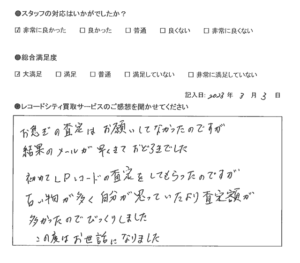 ●スタッフの対応はいかがでしたか？
☑ 非常に良かった □ 良かった □ 普通 □ 良くない □ 非常に良くない
●総合満足度
☑ 大満足 □ 満足 □ 普通 □ 満足していない □ 非常に満足していない
記入日: 2023 年 3 月 3 日
●レコードシティ買取サービスのご感想を聞かせてください
お急ぎの査定はお願いしてなかったのですが
結果のメールが早くきておどろきました
初めてLPレコードの査定をしてもらったのですが
古い物が多く自分が思っていたより査定額が
多かったのでびっくりしました
この度はお世話になりました